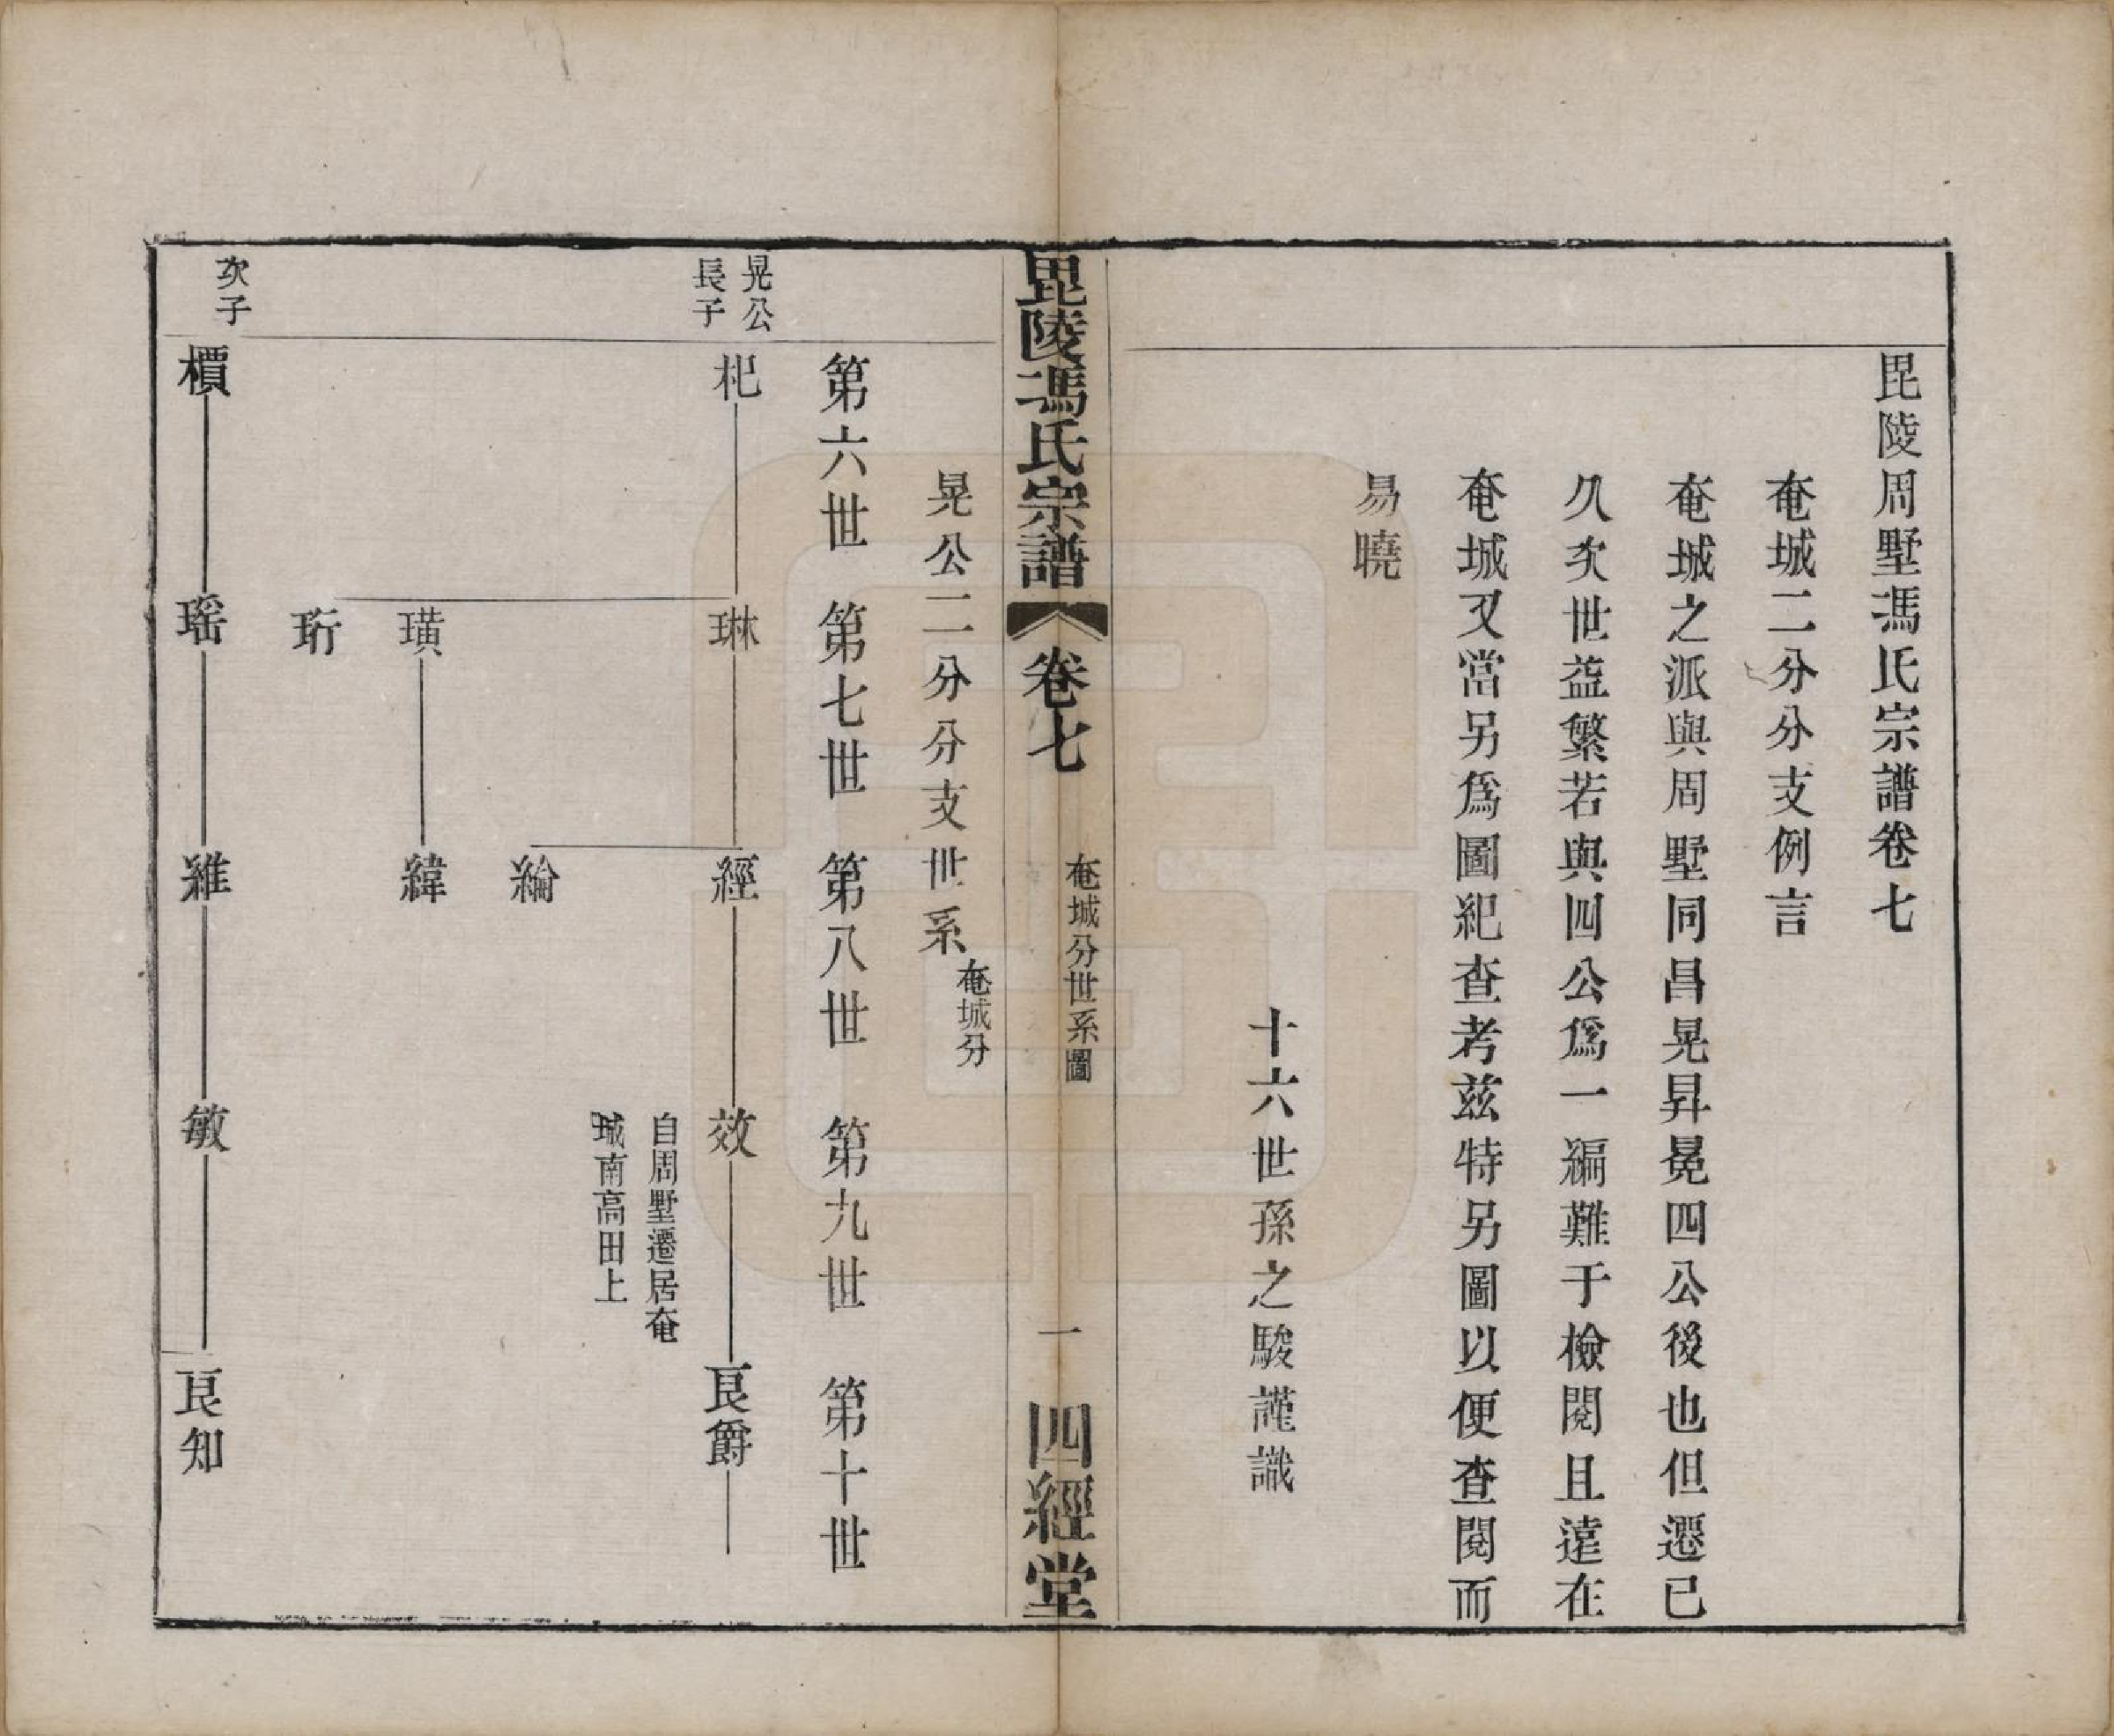 毘陵周墅馮氏宗譜卷七
奄城二分分支例言
奄城之派與周墅同昌晃昇冕四公後也但遷已
久次世益繁若與四公爲一編難于檢閱且遠在
奄城又當另爲圖紀查考兹特另圖以便查閱而
易曉
十六世孫之駿謹識
毘陵馮氏宗譜
卷七
奄城分世系圖
一
四經堂
晃公二分分支世系
奄城分
第六世 第七世 第八世 第九世 第十世
晃公
長子
杞 琳 經 效 良爵
自周墅遷居奄
城南高田上
綸
璜 緯
珩
次子
檟 瑶 維 敏 良知